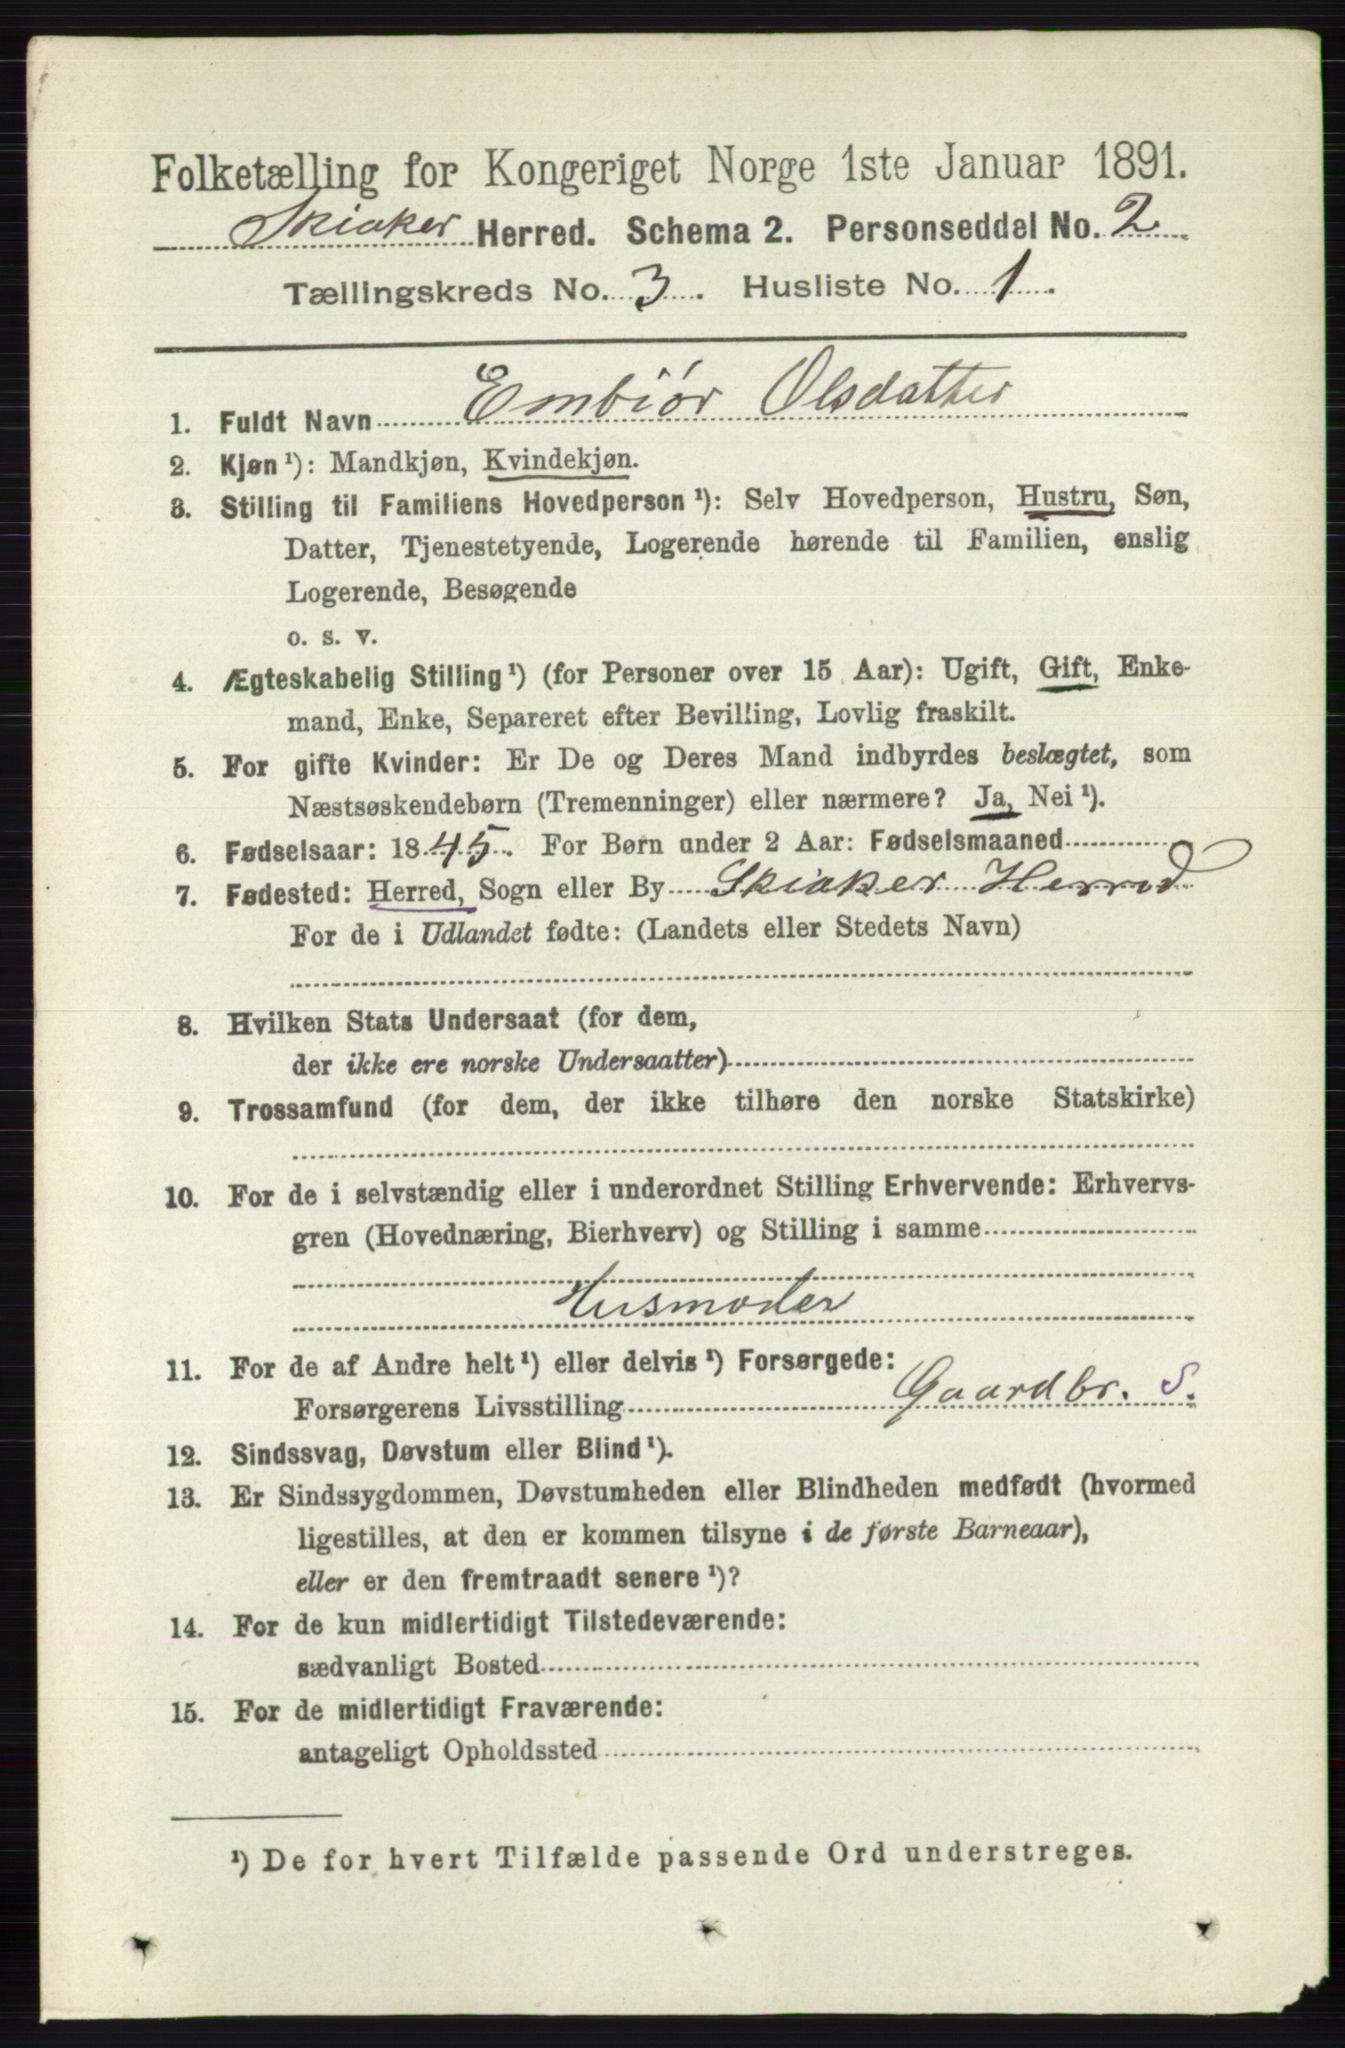 Folketælling for Kongeriget Norge 1ste Januar 1891.
Skiaker Herred. Schema 2. Personseddel No. 2
Tællingskreds No. 3. Husliste No. 1.
1. Fuldt Navn Embiør Olsdatter
2. Kjøn ¹): Mandkjøn, Kvindekjøn.
3. Stilling til Familiens Hovedperson ¹): Selv Hovedperson, Hustru, Søn,
Datter, Tjenestetyende, Logerende hørende til Familien, enslig
Logerende, Besøgende
o. s. v.
4. Ægteskabelig Stilling ¹) (for Personer over 15 Aar): Ugift, Gift, Enke-
mand, Enke, Separeret efter Bevilling, Lovlig fraskilt.
5. For gifte Kvinder: Er De og Deres Mand indbyrdes beslægtet, som
Næstsøskendebørn (Tremenninger) eller nærmere? Ja, Nei ¹).
6. Fødselsaar: 1845. For Børn under 2 Aar: Fødselsmaaned
7. Fødested: Herred, Sogn eller By Skiaker Herred
For de i Udlandet fødte: (Landets eller Stedets Navn)
8. Hvilken Stats Undersaat (for dem,
der ikke ere norske Undersaatter)
9. Trossamfund (for dem, der ikke tilhøre den norske Statskirke)
10. For de i selvstændig eller i underordnet Stilling Erhvervende: Erhvervs-
gren (Hovednæring, Bierhverv) og Stilling i samme
Husmoder
11. For de af Andre helt ¹) eller delvis ¹) Forsørgede:
Forsørgerens Livsstilling Gaardbr. S.
12. Sindssvag, Døvstum eller Blind ¹).
13. Er Sindssygdommen, Døvstumheden eller Blindheden medfødt (hvormed
ligestilles, at den er kommen tilsyne i de første Barneaar),
eller er den fremtraadt senere ¹)?
14. For de kun midlertidigt Tilstedeværende:
sædvanligt Bosted
15. For de midlertidigt Fraværende:
antageligt Opholdssted
¹) De for hvert Tilfælde passende Ord understreges.